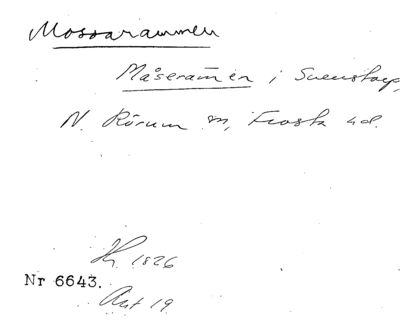 Mossarammen
Måseramen i Svenstorp,
N. Rörum sn, Frosta hd.
1826
Nr 6643.
Akt 19